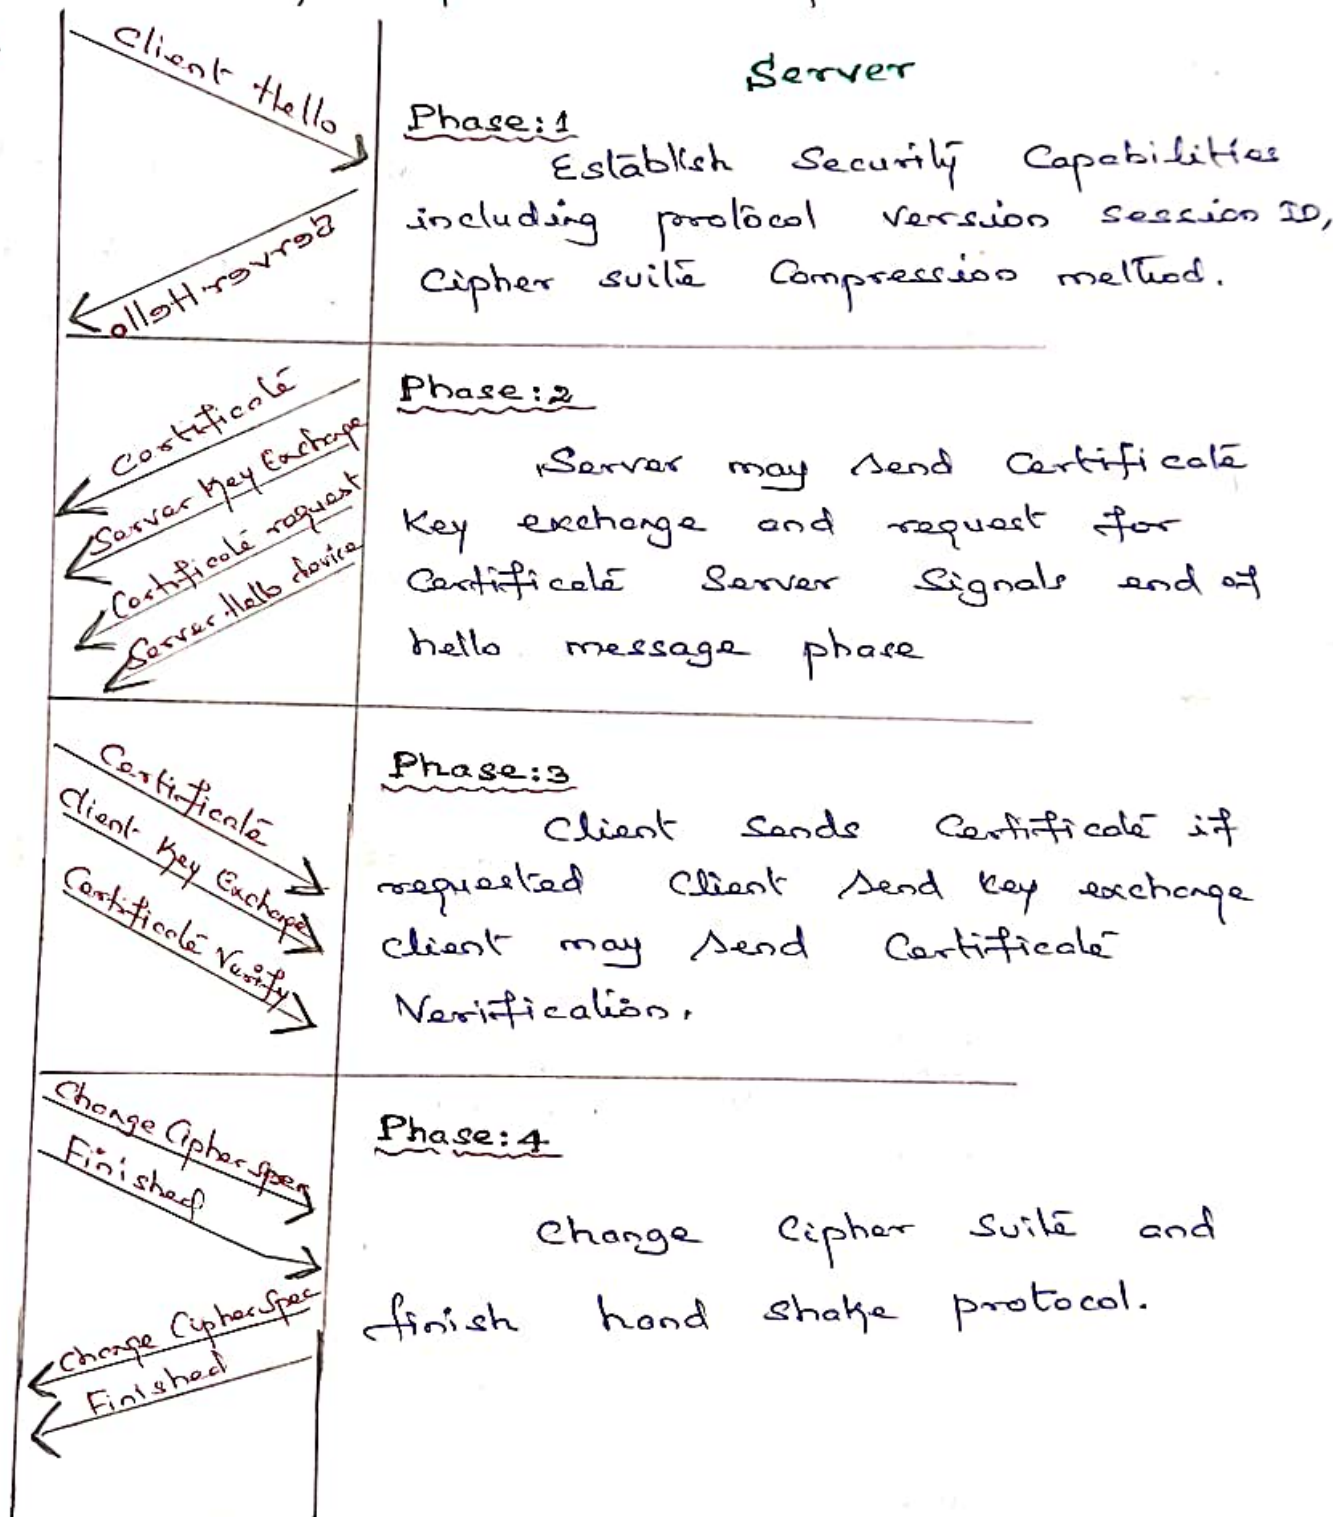 Server
Client Hello
Phase:1
Establish Security Capabilities
including protocol version session ID,
Cipher suite Compression method.
Server Hello
Phase:2
Certificate
Server Key Exchange
Certificate request
Server Hello
Server may send Certificate
Key exchange and request for
Certificate Server Signals end of
hello message phase
Phase:3
Certificate
Client Key Exchange
Certificate Verify
Client sends Certificate if
requested Client send key exchange
client may send Certificate
Verification.
Phase:4
Change Cipher spec
Finished
Change Cipher Suite and
finish hand shake protocol.
Change Cipher Spec
Finished